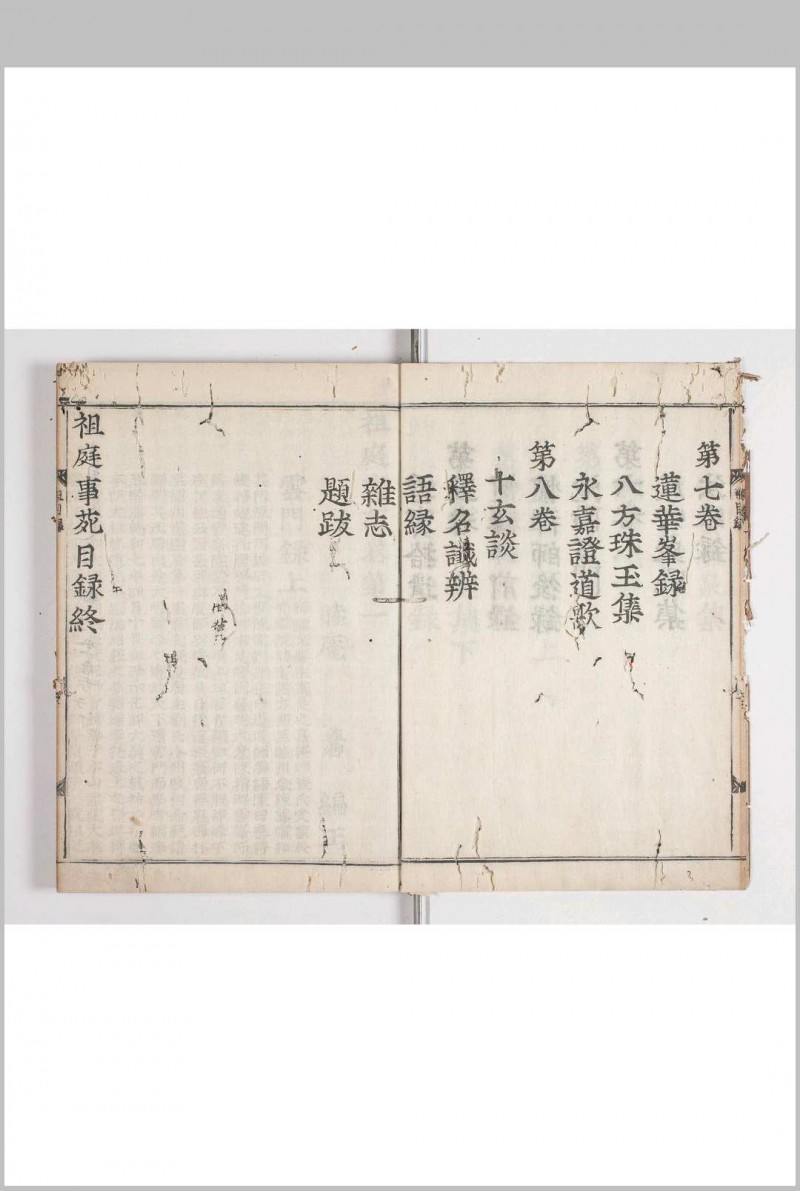 第七卷
蓮華峯録
八方珠玉集
永嘉證道歌
第八卷
十玄談
釋名讖辨
語縁
雜志
題跋
祖庭事苑目録終